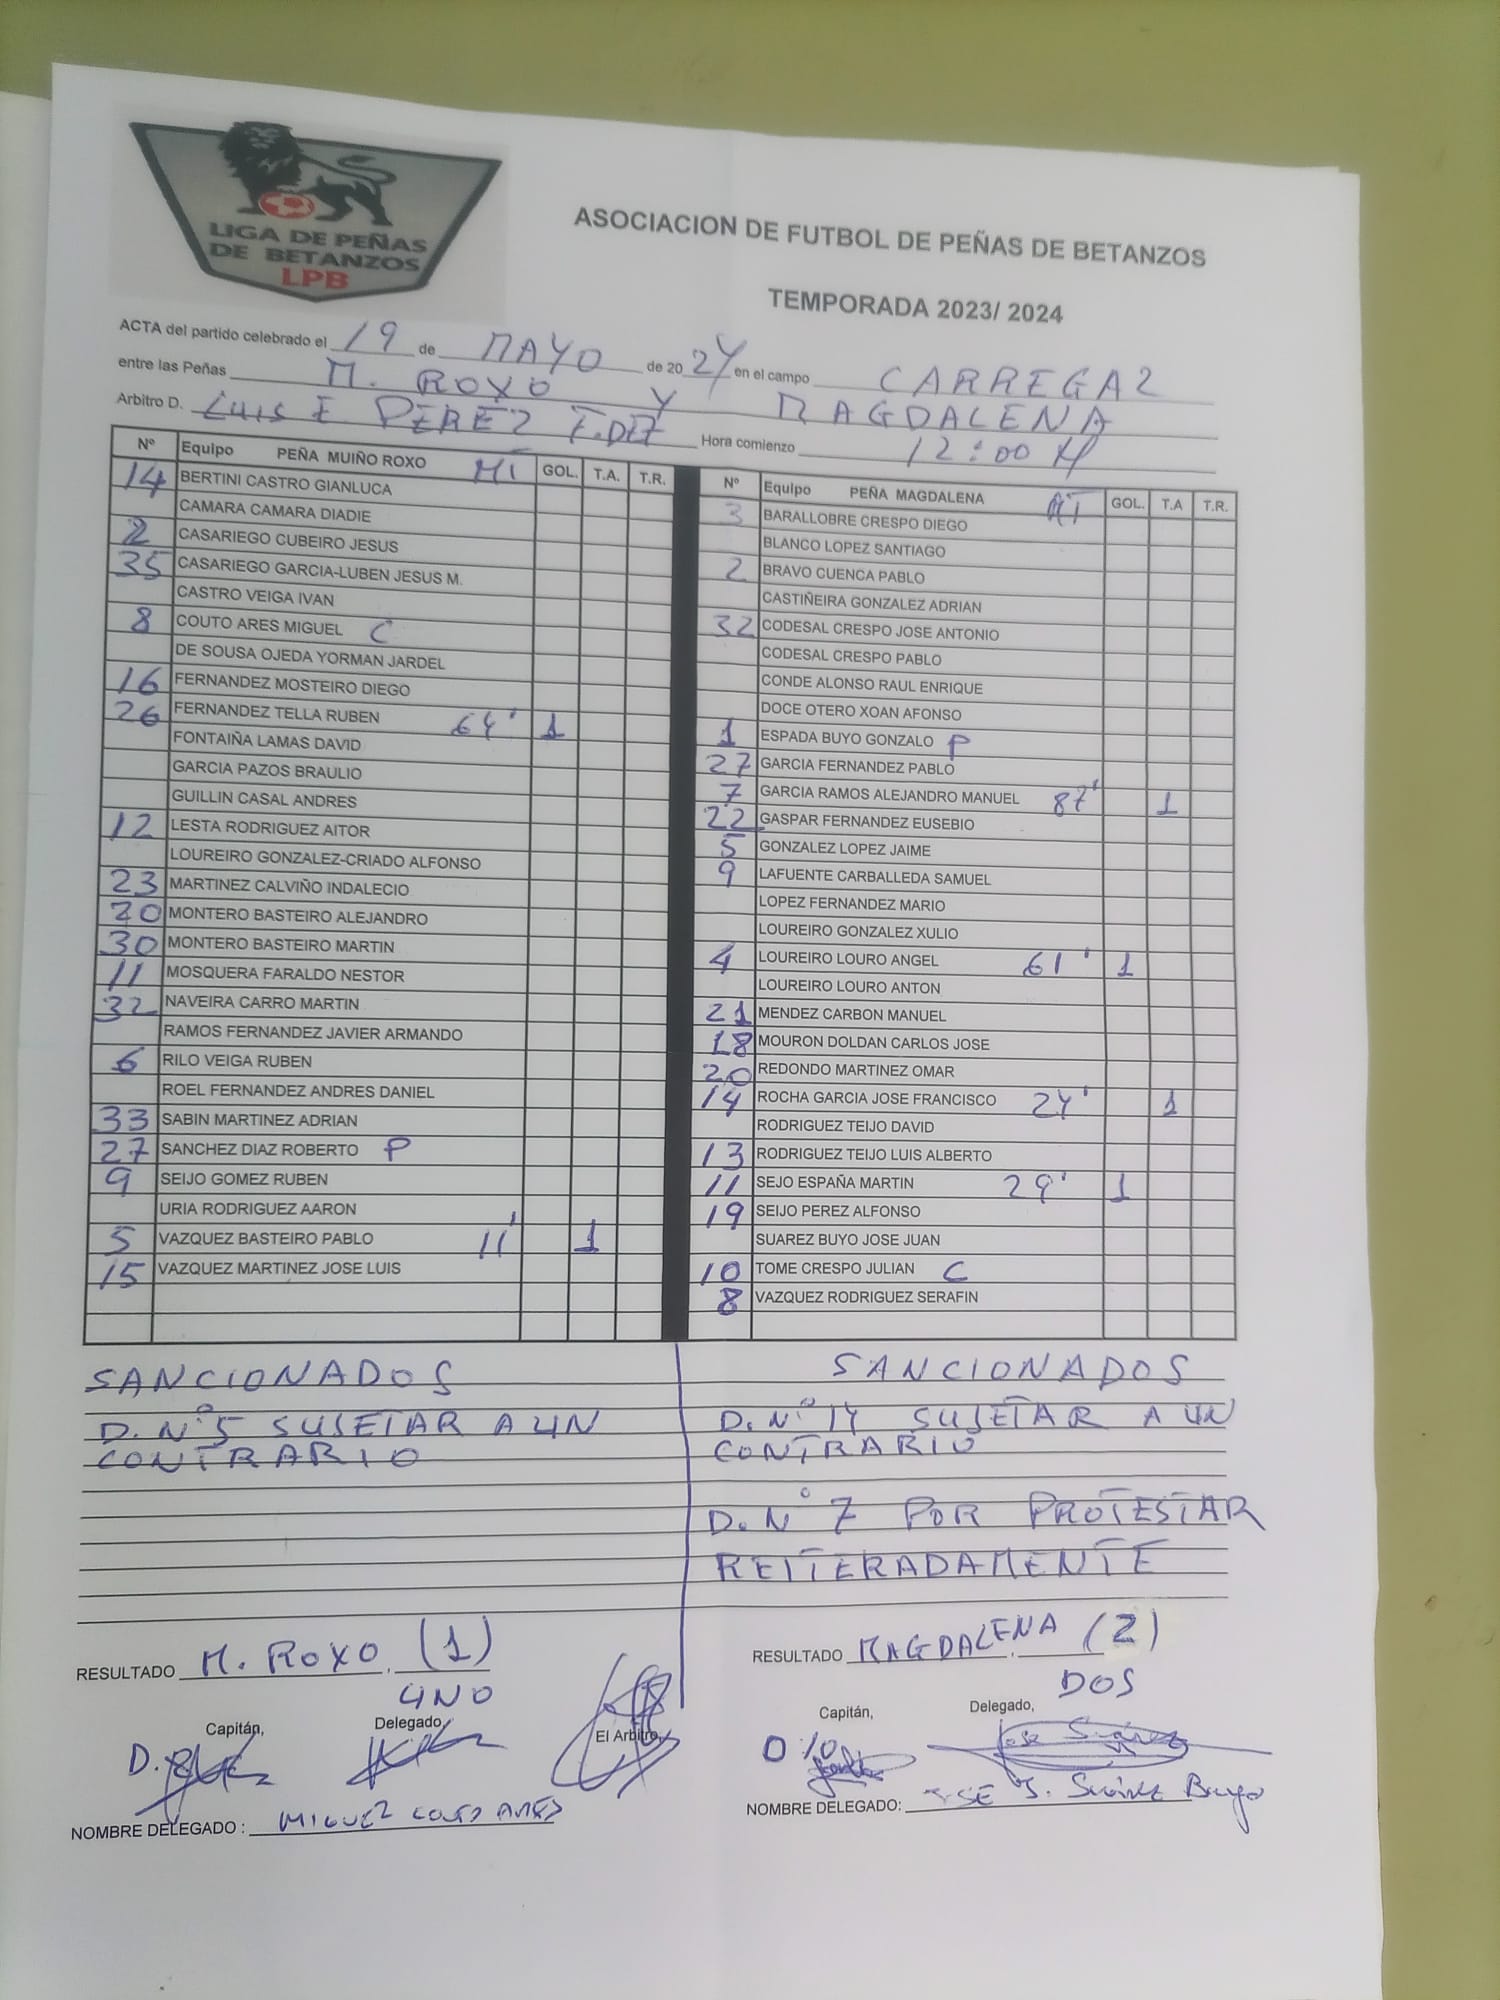 LIGA DE PEÑAS
DE BETANZOS
LPB
ASOCIACION DE FUTBOL DE PEÑAS DE BETANZOS
TEMPORADA 2023/ 2024
ACTA del partido celebrado el 19 de MAYO de 2024 en el campo CARREGAZ
entre las Peñas M. ROXO Y MAGDALENA
Arbitro D. LUIS E PEREZ F.DEZ Hora comienzo 12:00 H
Nº Equipo PEÑA MUIÑO ROXO GOL. T.A. T.R.
14 BERTINI CASTRO GIANLUCA
CAMARA CAMARA DIADIE
2 CASARIEGO CUBEIRO JESUS
35 CASARIEGO GARCIA-LUBEN JESUS M.
CASTRO VEIGA IVAN
8 COUTO ARES MIGUEL C
DE SOUSA OJEDA YORMAN JARDEL
16 FERNANDEZ MOSTEIRO DIEGO
26 FERNANDEZ TELLA RUBEN 64' 1
FONTAIÑA LAMAS DAVID
GARCIA PAZOS BRAULIO
GUILLIN CASAL ANDRES
12 LESTA RODRIGUEZ AITOR
LOUREIRO GONZALEZ-CRIADO ALFONSO
23 MARTINEZ CALVIÑO INDALECIO
20 MONTERO BASTEIRO ALEJANDRO
30 MONTERO BASTEIRO MARTIN
11 MOSQUERA FARALDO NESTOR
32 NAVEIRA CARRO MARTIN
RAMOS FERNANDEZ JAVIER ARMANDO
6 RILO VEIGA RUBEN
ROEL FERNANDEZ ANDRES DANIEL
33 SABIN MARTINEZ ADRIAN
27 SANCHEZ DIAZ ROBERTO P
9 SEIJO GOMEZ RUBEN
URIA RODRIGUEZ AARON
5 VAZQUEZ BASTEIRO PABLO 11' 1
15 VAZQUEZ MARTINEZ JOSE LUIS
Nº Equipo PEÑA MAGDALENA GOL. T.A T.R.
3 BARALLOBRE CRESPO DIEGO
BLANCO LOPEZ SANTIAGO
2 BRAVO CUENCA PABLO
CASTIÑEIRA GONZALEZ ADRIAN
32 CODESAL CRESPO JOSE ANTONIO
CODESAL CRESPO PABLO
CONDE ALONSO RAUL ENRIQUE
DOCE OTERO XOAN AFONSO
1 ESPADA BUYO GONZALO P
27 GARCIA FERNANDEZ PABLO
7 GARCIA RAMOS ALEJANDRO MANUEL 87' 1
22 GASPAR FERNANDEZ EUSEBIO
5 GONZALEZ LOPEZ JAIME
9 LAFUENTE CARBALLEDA SAMUEL
LOPEZ FERNANDEZ MARIO
LOUREIRO GONZALEZ XULIO
4 LOUREIRO LOURO ANGEL 61' 1
LOUREIRO LOURO ANTON
21 MENDEZ CARBON MANUEL
18 MOURON DOLDAN CARLOS JOSE
20 REDONDO MARTINEZ OMAR
14 ROCHA GARCIA JOSE FRANCISCO 24' 1
RODRIGUEZ TEIJO DAVID
13 RODRIGUEZ TEIJO LUIS ALBERTO
11 SEJO ESPAÑA MARTIN 29' 1
19 SEIJO PEREZ ALFONSO
SUAREZ BUYO JOSE JUAN
10 TOME CRESPO JULIAN C
8 VAZQUEZ RODRIGUEZ SERAFIN
SANCIONADOS
D. Nº 5 SUJETAR A UN
CONTRARIO
SANCIONADOS
D. Nº 14 SUJETAR A UN
CONTRARIO
D. Nº 7 POR PROTESTAR
REITERADAMENTE
RESULTADO M. ROXO (1)
UNO
RESULTADO MAGDALENA (2)
DOS
Capitán, Delegado, El Arbitro,
Capitán, Delegado,
NOMBRE DELEGADO : MIGUEL COUTO ARES
NOMBRE DELEGADO: JOSE J. Suárez Buyo